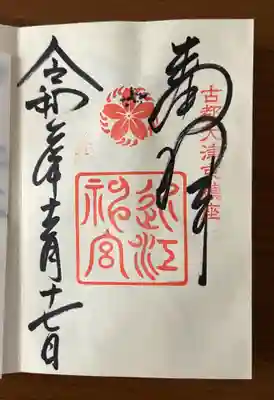 古都大津京鎮座
奉拝
近江
神宮
令和年月十七日